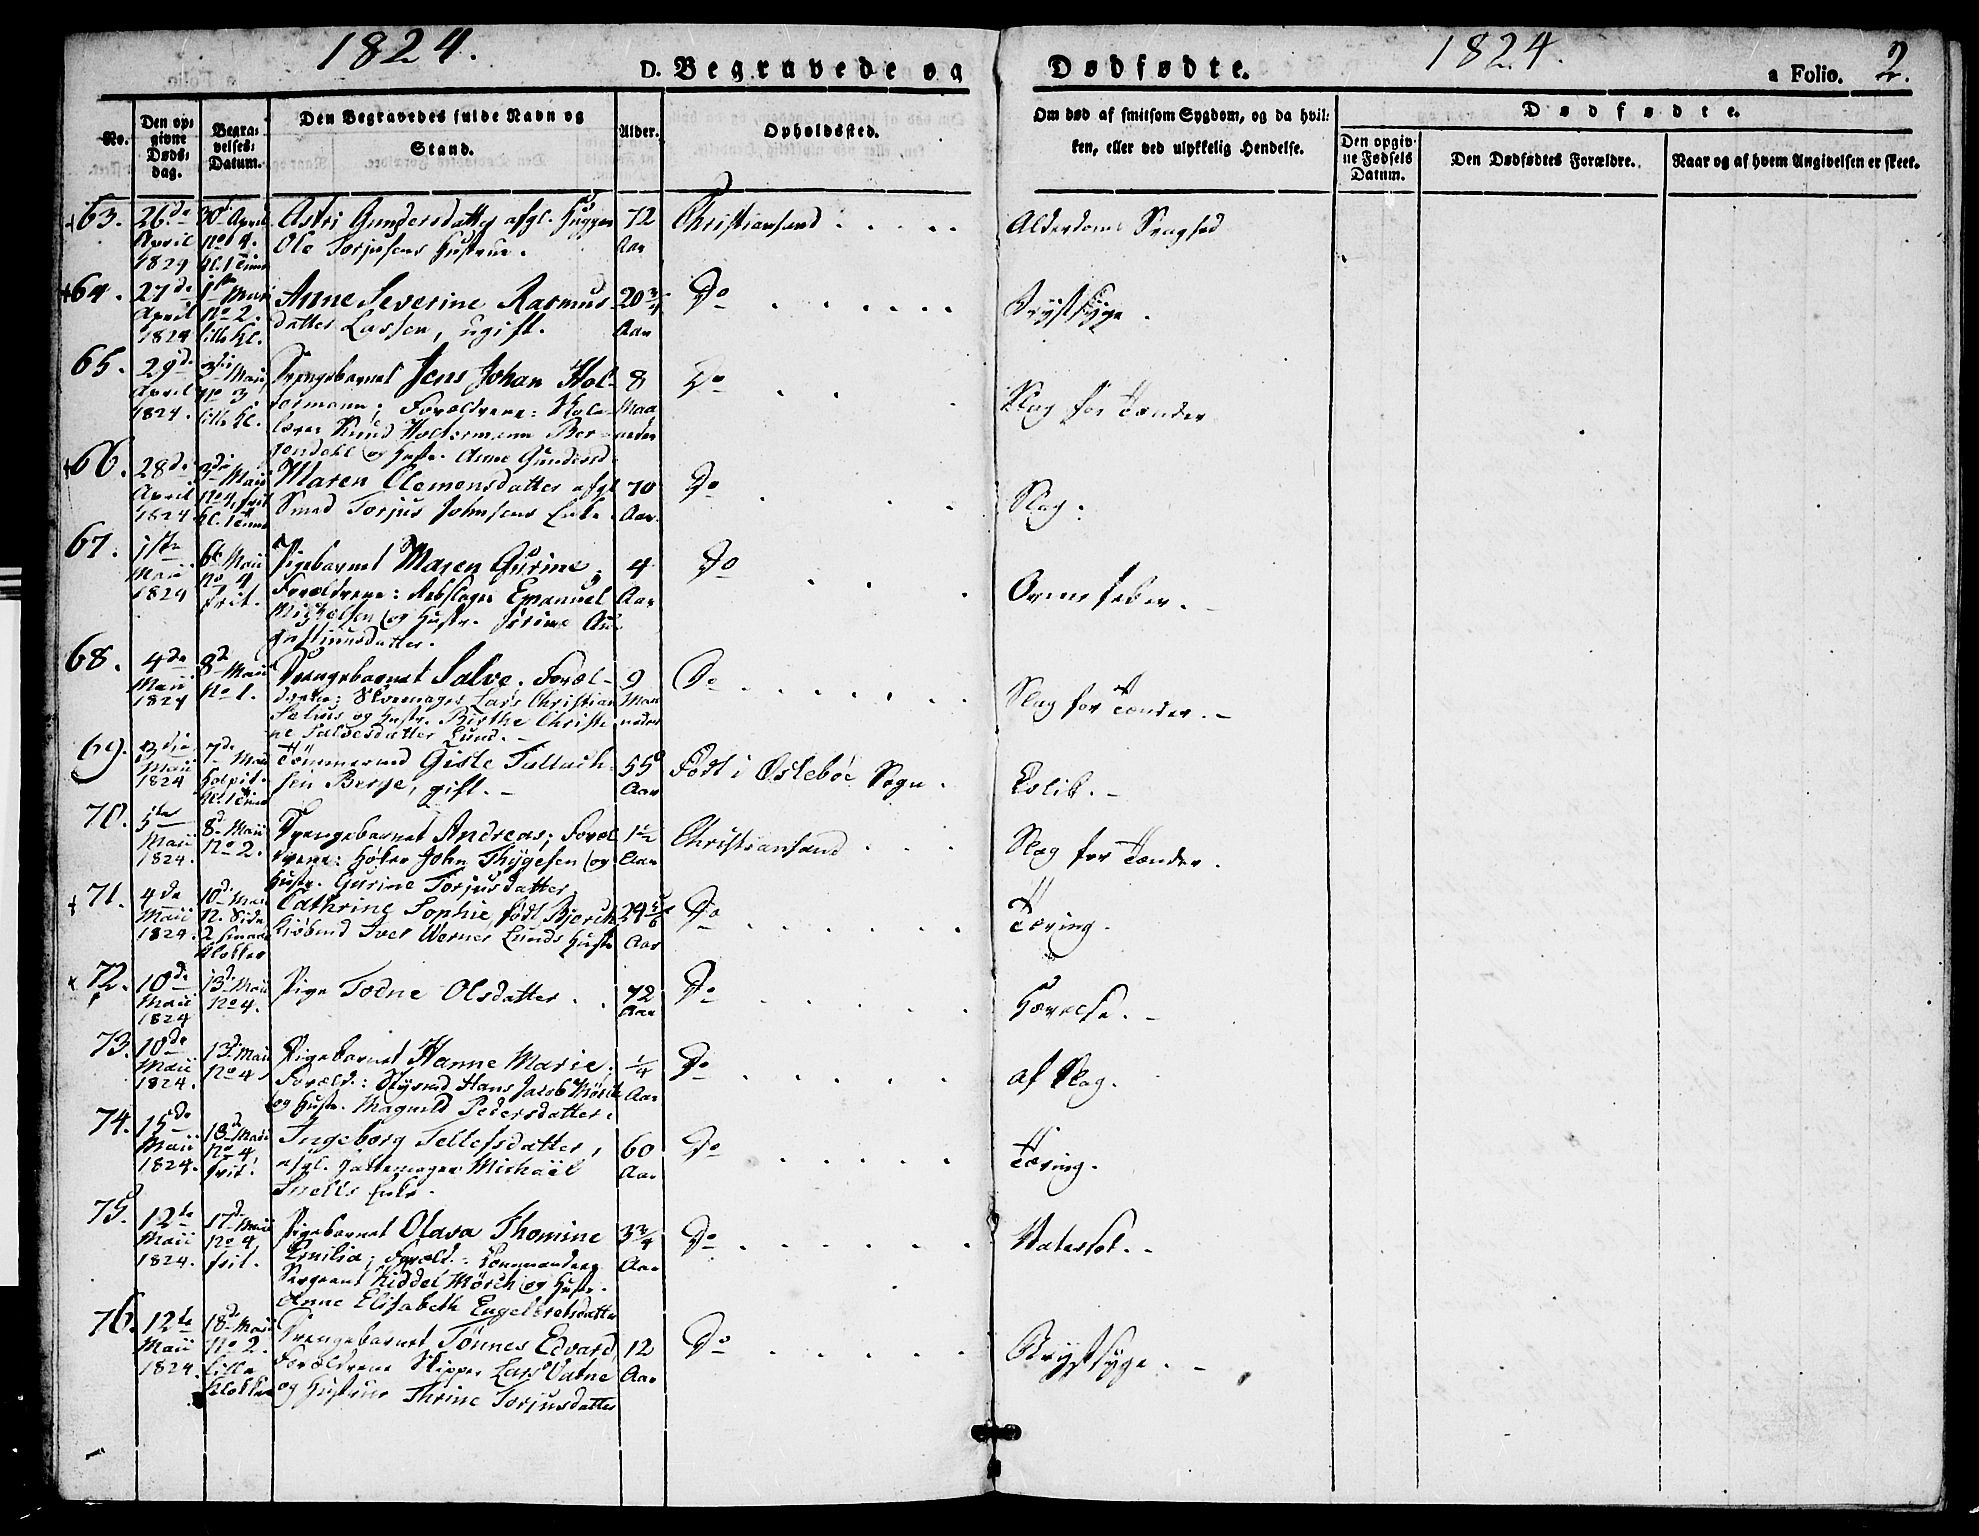 1824.
D. Begravede og
Dødfødte.
1824.
a Folio. 2.
No.
Den op-
givne
Døds-
dag.
Begra-
velses-
Datum.
Den Begravedes fulde Navn og
Stand.
Alder.
Opholdssted.
Om død af smitsom Sygdom, og da hvil-
ken, eller ved ulykkelig Hendelse.
Dødfødte.
Den opgiv-
ne Fødsels
Datum.
Den Dødfødtes Forældre.
Naar og af hvem Angivelsen er skeet.
63. 26de April 1824 30te April No 4.
Astri Gundersdatter afgl.
Ole Torjusens Hustrue.
72 Aar
Christiansand
Alderdoms Svaghed
64. 27de April 1824 1ste Maii No 2. lille Kl.
Anne Severine Rasmus-
datter Lassen, ugift.
20 3/4 Aar
Do
Brystsyge.
65. 29de April 1824. 3die Maii No 3 lille Kl.
Drengebarnet Jens Johan Hol-
termann; Forældrene:
Knud Holtermann Ber-
gendahl og Hustr. Anne Gundersd.
8 Maaneder
Do
Slag for Tænder
66. 28de April 1824 3die Maii No 4, frit
Maren Clemensdatter afgl.
Smed Torjus Johnsens Enke.
70 Aar.
Do
Slag.
67. 1ste Maii 1824 6te Maii No 4, frit.
Pigebarnet Maren Gurine;
Forældrene: Rebslager Emanuel
Michelsen og Hustr. Jørine Au-
gustinusdatter.
4 Aar
Do
Ormefeber.
68. 4de Maii 1824 8de Maii No 1.
Drengebarnet Salve. Foræl-
drene: Lars Christian
og Hustr. Birthe Christi-
ne Salvesdatter Lund.
9 Maaneder
Do
Slag for Tænder.
69. 3die Maii 1824 7de Maii Hospit.
Tømmermd Gisle Tallach-
sen Berge, gift.
55 Aar
Født i Østebøe Sogn.
Colik.
70. 5te Maii 1824. 8de Maii No 2.
Drengebarnet Andreas; Foræl-
drene: Høker John Thygesen og
Hustr. Gurine Torjusdatter
1 1/2 Aar
Christiansand
Slag for Tænder.
71. 4de Maii 1824. 10de Maii N. Side 2 smaae Klokker
Cathrine Sophie, født Bjørch
Kiøbmd Iver Werner Lunds Hustr.
24 5/6 Aar
Do
Tæring.
72. 10de Maii 1824 13de Maii No 4.
Pige Todne Olsdatter.
72 Aar
Do
Hævelse.
73. 10de Maii 1824. 13de Maii No 4
Pigebarnet Hanne Marie;
Foræld.: Styrmd Hans Jacob Mørch
og Hustr. Magnild Pedersdatter.
1/4 Aar
Do
af Slag.
74. 15de Maii 1824. 18de Maii No 4, frit.
Ingeborg Tellefsdatter,
afgl. Michael
Snells Enke.
60 Aar
Do
Tæring.
75. 12te Maii 1824. 17de Maii No 4 frit.
Pigebarnet Olava Thomine
Emilia; Foræld.: Commandeer
Sergeant Riddel Mørch og Hustr.
Anne Elisabeth Engelbretsdatter
3 3/4 Aar
Do
Vatersot.
76. 12te Maii 1824. 18de Maii No 2. lille Klokke
Drengebarnet Tønnes Edvard
Forældrene Skipper Lars Vatne
og Hustrue Thrine Torjusdatter
12 Aar
Do
Brystsyge.